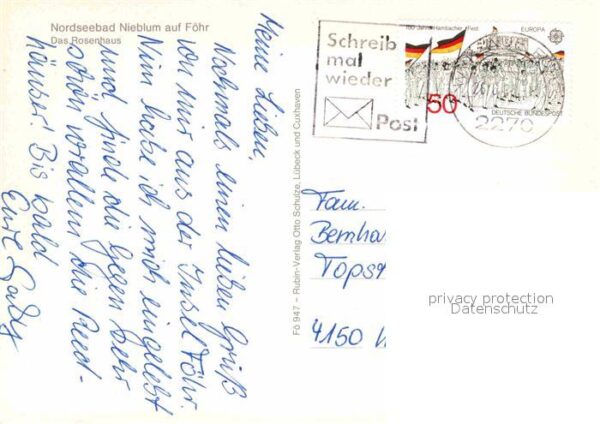 Nordseebad Nieblum auf Föhr
Das Rosenhaus
Meine Lieben,
Nochmals einen lieben Gruß
von mir aus der Insel Föhr.
Nun habe ich mich eingelebt
und finde die Gegend sehr
schön vorallem die Reed-
häuser! Bis bald
Eure Gaby
Fö 947 – Rubin-Verlag Otto Schulze, Lübeck und Cuxhaven
Schreib
mal
wieder
Post
150 Jahre Hambacher Fest
EUROPA
CEPT
50
DEUTSCHE BUNDESPOST
2270
Fam.
Bernha
Tops
4150
privacy protection
Datenschutz